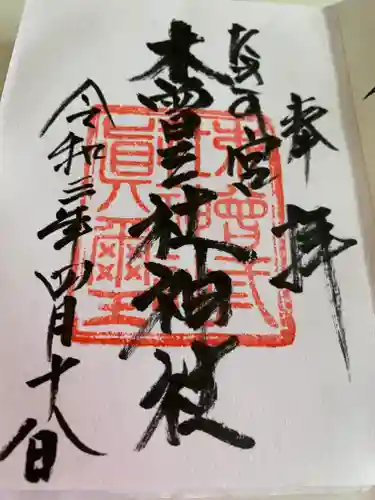 奉拝
たきの宮
木曽三社神社
令和三年四月十八日